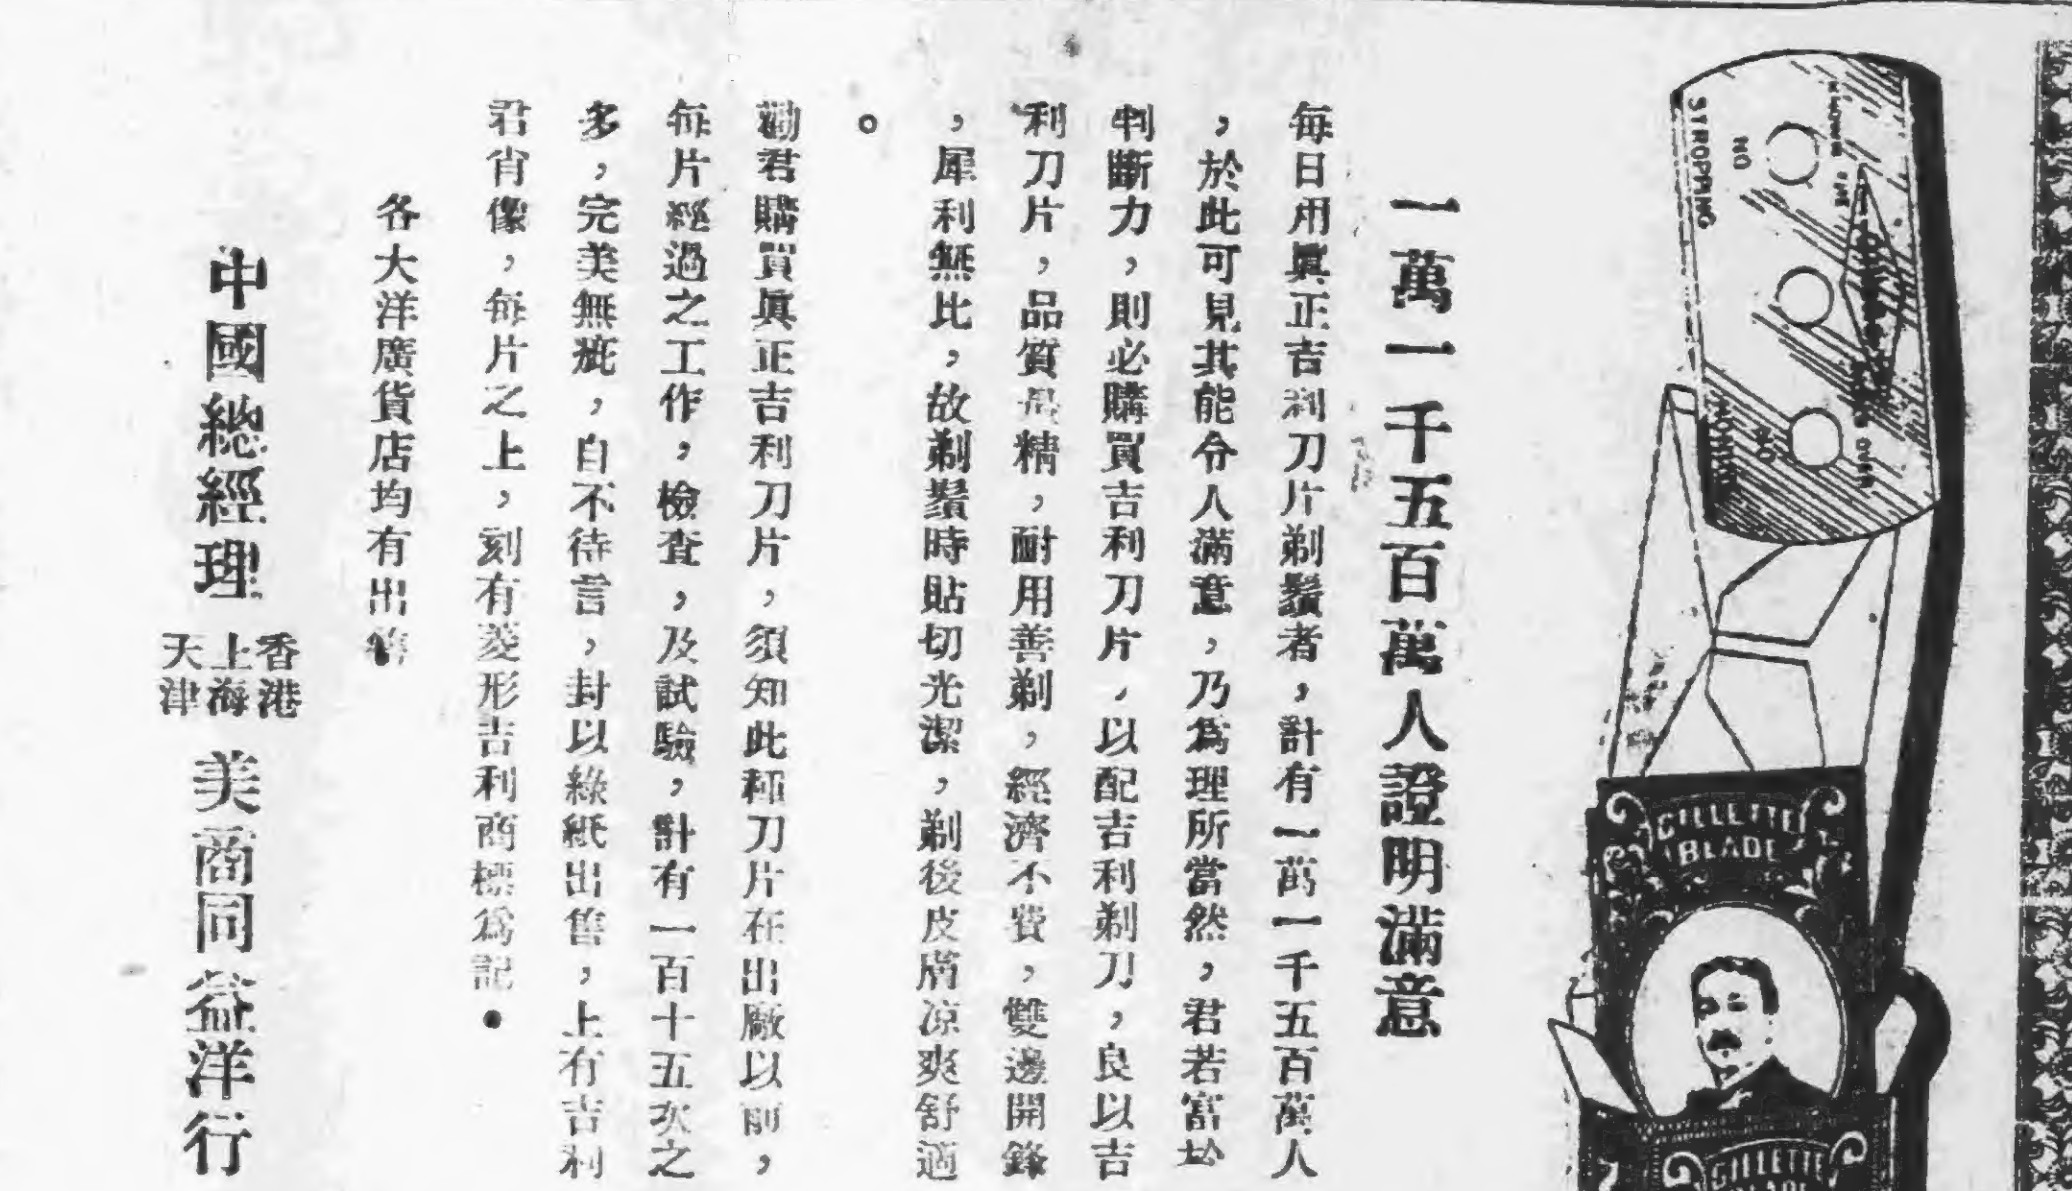 NO
STROPPING
GILLETTE
BLADE
GILLETTE
一萬一千五百萬人證明滿意
每日用眞正吉利刀片剃鬚者，計有一萬一千五百萬人
，於此可見其能令人滿意，乃爲理所當然，君若富於
判斷力，則必購買吉利刀片，以配吉利剃刀，良以吉
利刀片，品質最精，耐用善剃，經濟不費，雙邊開鋒
，犀利無比，故剃鬚時貼切光潔，剃後皮膚凉爽舒適
。
勸君購買眞正吉利刀片，須知此種刀片在出廠以前，
每片經過之工作，檢查，及試驗，計有一百十五次之
多，完美無疵，自不待言，封以綠紙出售，上有吉利
君肖像，每片之上，刻有菱形吉利商標爲記。
各大洋廣貨店均有出售
中國總經理
香港
上海
天津
美商同益洋行